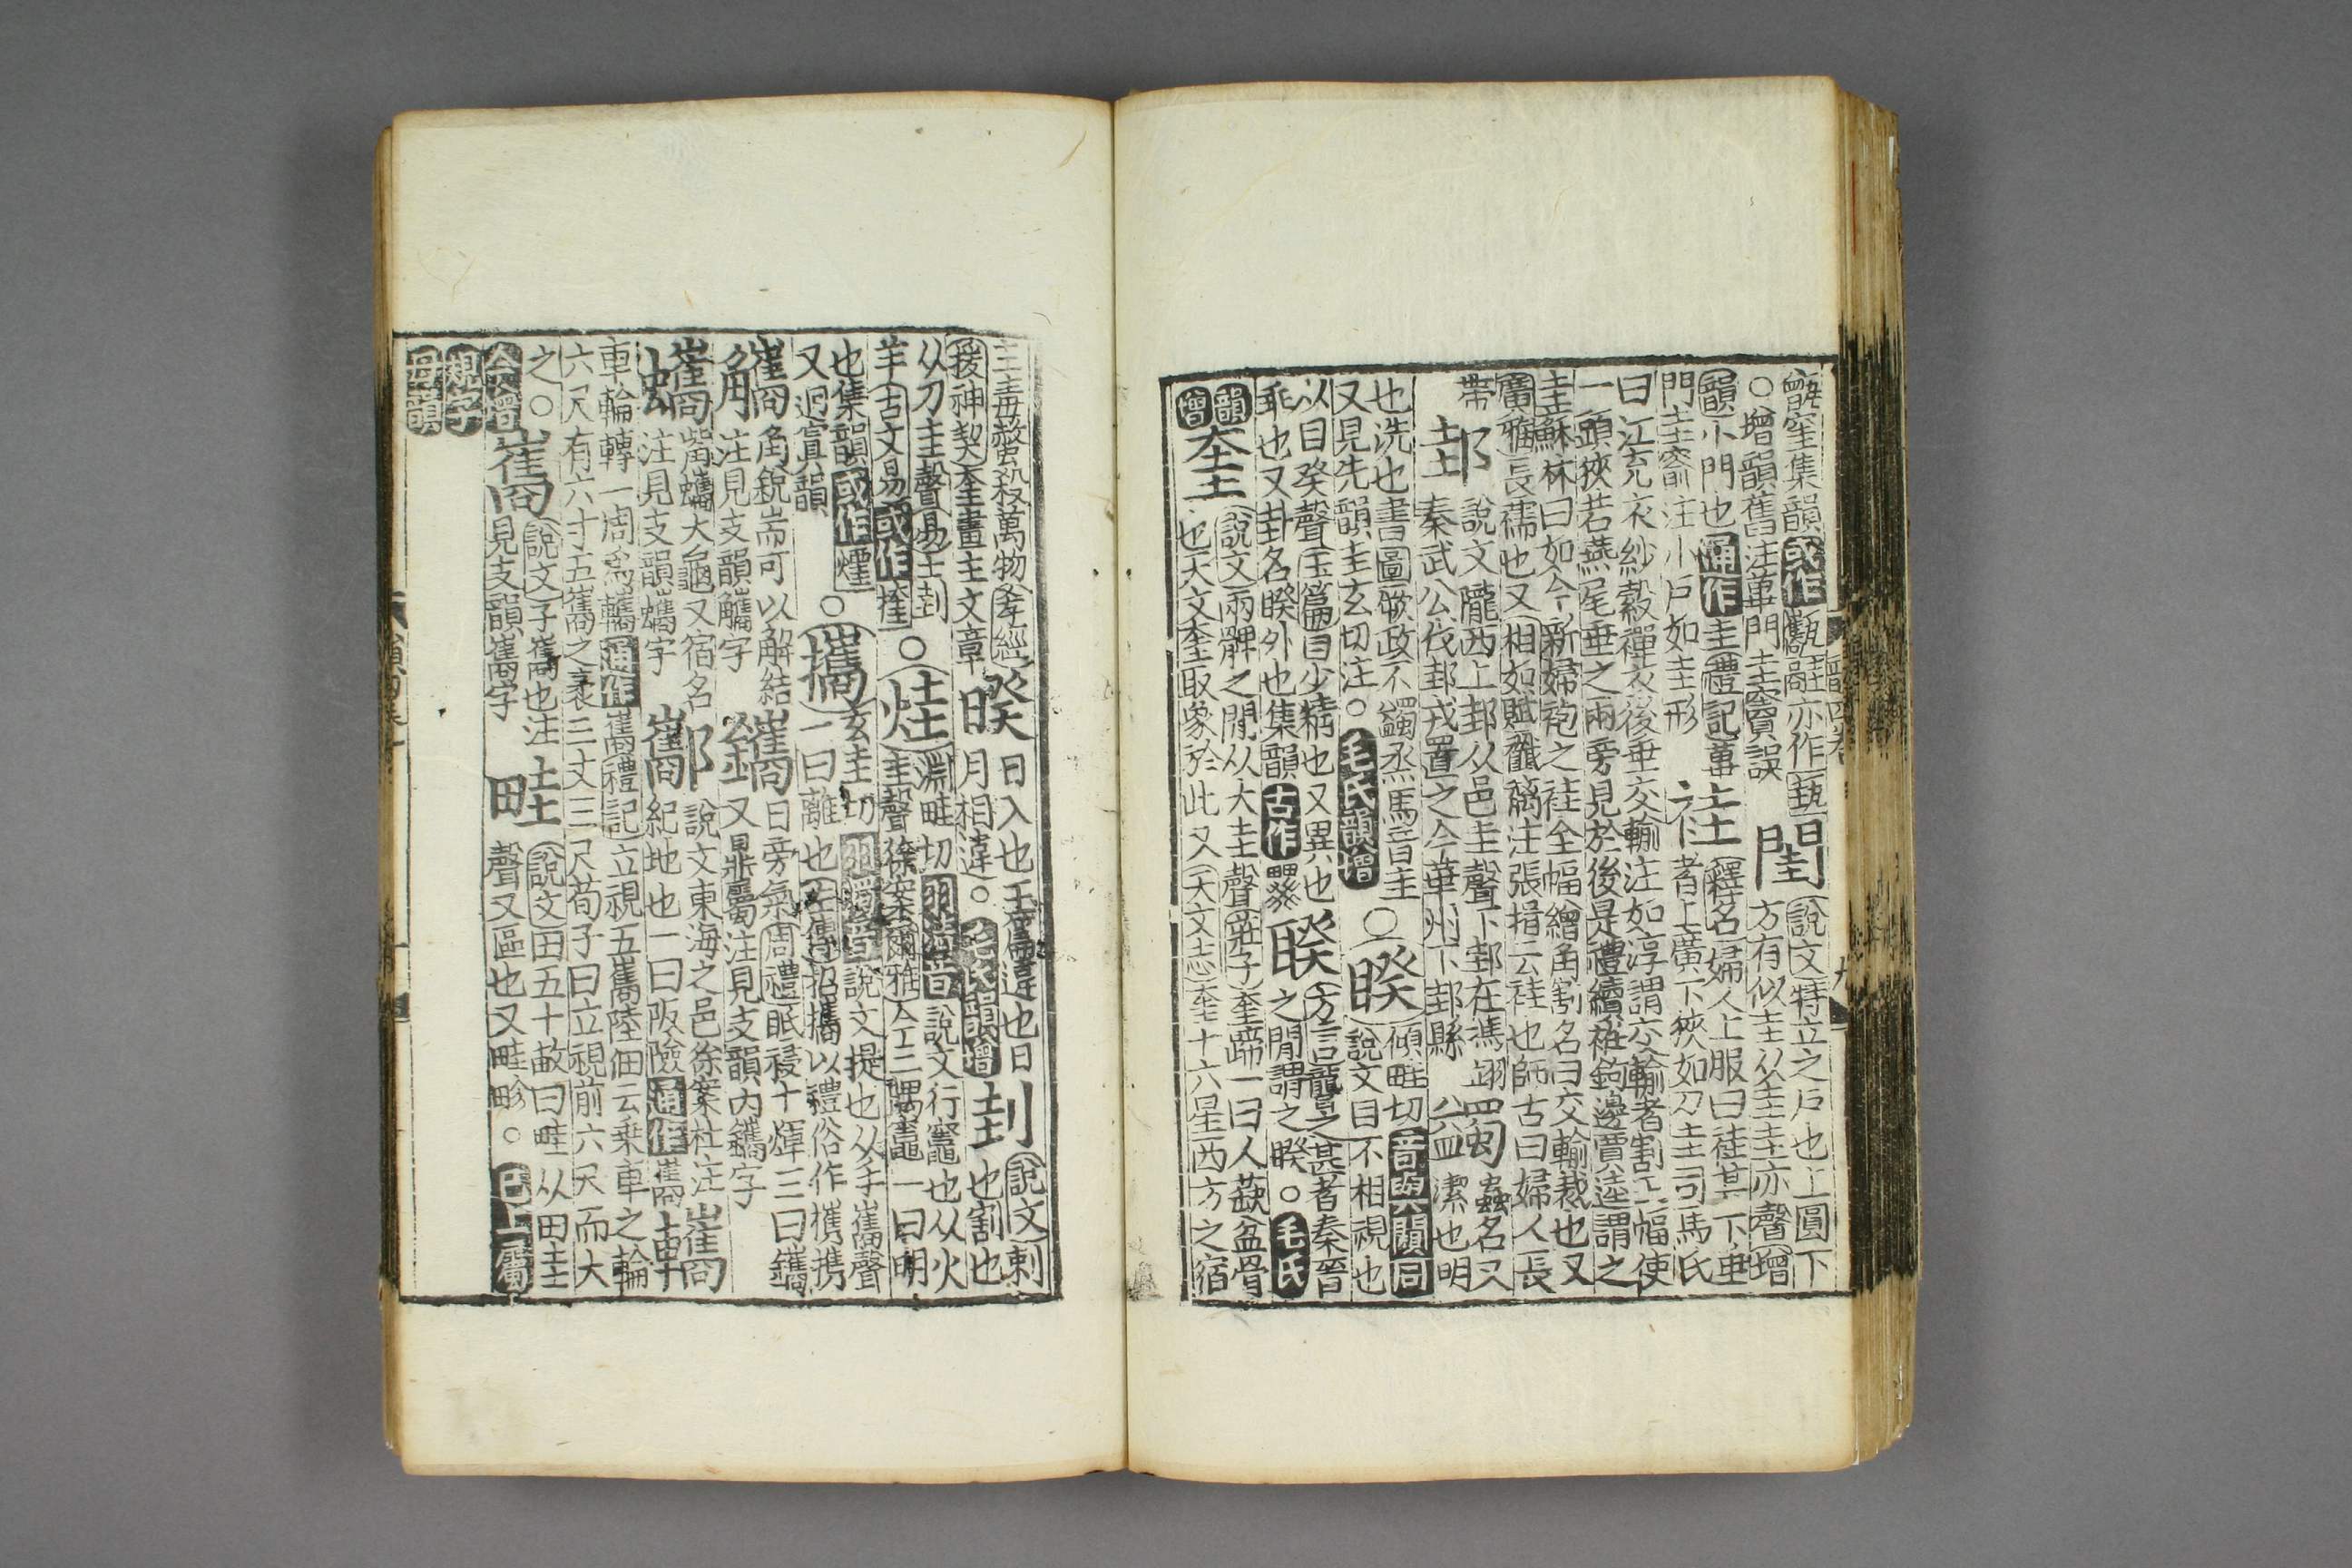 甑窐集韻或作䰛䰞亦作𤮰
○增韻舊注蓽門圭竇誤
閨
說文特立之戶也上圓下
方有似圭从圭圭亦聲增
韻小門也通作圭禮記蓽
門圭窬注小戶如圭形
袿
釋名婦人上服曰袿其下垂
者上廣下狹如刀圭司馬氏
曰江充衣紗縠襌衣後垂交輸注如淳謂交輸者割正幅使
一頭狹若燕尾垂之兩旁見於後是禮續衽鉤邊賈逵謂之
圭蘇林曰如今新婦袍之袿全幅繒角割名曰交輸裁也又
廣雅長襦也又相如賦襳䙰注張揖云袿也師古曰婦人長
帶
邽
說文隴西上邽从邑圭聲下邽在馮翊
秦武公伐邽戎置之今華州下邽縣
蠲
蟲名又
潔也明
也洗也書圖厥政不蠲烝馬音圭
又見先韻圭玄切注○毛氏韻增
○睽
傾畦切音與闋同
說文目不相視也
以目癸聲玉篇目少精也又異也
乖也又卦名睽外也集韻古作
睽
方言聾之甚者秦晉
之閒謂之睽○毛氏
韻增
奎
說文兩髀之閒从大圭聲莊子奎蹄一曰人蔽盆骨
也天文奎取象於此又天文志奎十六星西方之宿
主毒螫殺萬物孝經
援神契奎畫主文章
睽
日入也壬儒違也日
月相違○毛氏韻增
刲
說文刺
也割也
从刀圭聲易士刲
羊古文易或作㧡
○烓
淵畦切羽清音說文行竈也从火
圭聲徐案爾雅今三隅竈一曰明
也集韻或作煙
又迥寘韻
○攜
玄圭切羽濁音說文提也从手巂聲
一曰離也左傳招攜以禮俗作㩗携
觿
角銳耑可以解結
注見支韻觿字
鑴
日旁氣周禮眡祲十煇三曰鑴
又鼎屬注見支韻內鑴字
蠵
觜蠵大龜又宿名
注見支韻蠵字
酅
說文東海之邑徐案杜注
紀地也一曰阪險通作巂
轊
車輪轉一周爲轊通作巂禮記立視五巂陸佃云乗車之輪
六尺有六寸五巂之袤三丈三尺荀子曰立視前六尺而大
之○
會增
巂
說文子巂也注
見支韻巂字
畦
說文田五十畝曰畦从田圭
聲又區也又畦畛○巳上屬
規字
母韻